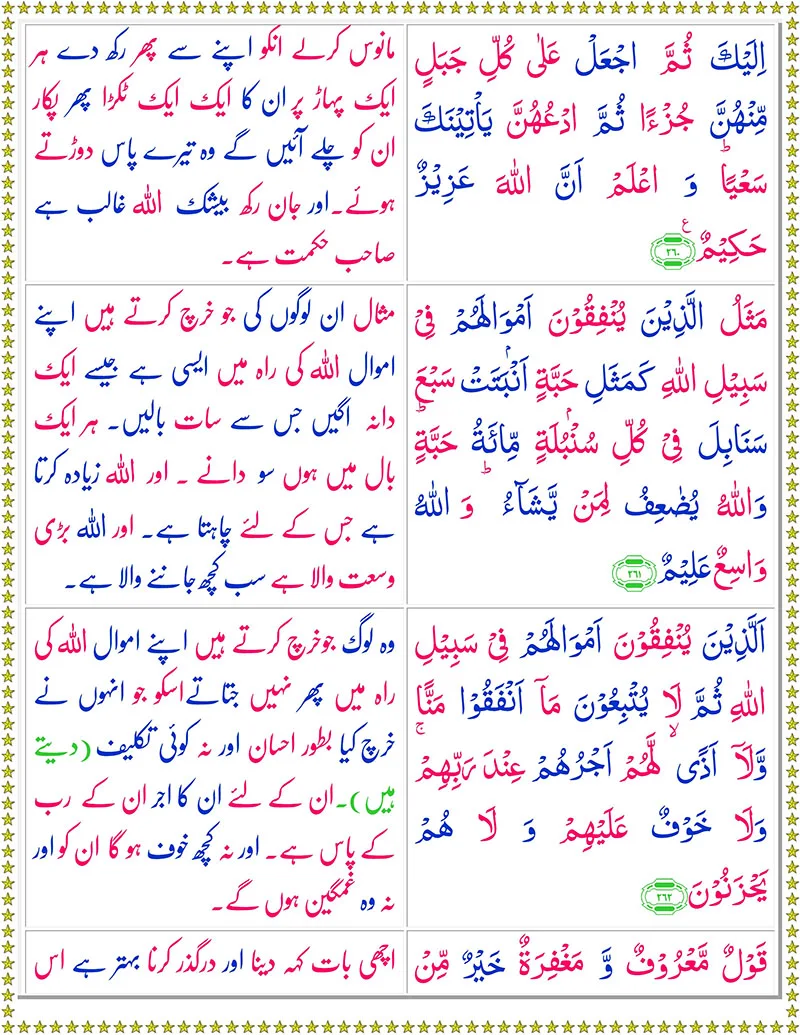 اِلَيْكَ ثُمَّ اجْعَلْ عَلٰى كُلِّ جَبَلٍ
مِّنْهُنَّ جُزْءًا ثُمَّ ادْعُهُنَّ يَاْتِيْنَكَ
سَعْيًا ؕ وَ اعْلَمْ اَنَّ اللهَ عَزِيْزٌ
حَكِيْمٌ ۧ ﴿۲۶۰﴾
مانوس کرلے انکو اپنے سے پھر رکھ دے ہر
ایک پہاڑ پر ان کا ایک ایک ٹکڑا پھر پکار
ان کو چلے آئیں گے وہ تیرے پاس دوڑتے
ہوئے۔ اور جان رکھ بیشک اللہ غالب ہے
صاحب حکمت ہے۔
مَثَلُ الَّذِيْنَ يُنْفِقُوْنَ اَمْوَالَهُمْ فِيْ
سَبِيْلِ اللهِ كَمَثَلِ حَبَّةٍ اَنْۢبَتَتْ سَبْعَ
سَنَابِلَ فِيْ كُلِّ سُنْۢبُلَةٍ مِّائَةُ حَبَّةٍ ؕ
وَاللهُ يُضٰعِفُ لِمَنْ يَّشَآءُ ؕ وَ اللهُ
وَاسِعٌ عَلِيْمٌ ﴿۲۶۱﴾
مثال ان لوگوں کی جو خرچ کرتے ہیں اپنے
اموال اللہ کی راہ میں ایسی ہے جیسے ایک
دانہ اگیں جس سے سات بالیں۔ ہر ایک
بال میں ہوں سو دانے ۔ اور اللہ زیادہ کرتا
ہے جس کے لئے چاہتا ہے۔ اور اللہ بڑی
وسعت والا ہے سب کچھ جاننے والا ہے۔
اَلَّذِيْنَ يُنْفِقُوْنَ اَمْوَالَهُمْ فِيْ سَبِيْلِ
اللهِ ثُمَّ لَا يُتْبِعُوْنَ مَاۤ اَنْفَقُوْا مَنًّا
وَّلَاۤ اَذًى ۙ لَّهُمْ اَجْرُهُمْ عِنْدَ رَبِّهِمْ ۚ
وَلَا خَوْفٌ عَلَيْهِمْ وَ لَا هُمْ
يَحْزَنُوْنَ ﴿۲۶۲﴾
وہ لوگ جو خرچ کرتے ہیں اپنے اموال اللہ کی
راہ میں پھر نہیں جتاتے اسکو جو انہوں نے
خرچ کیا بطور احسان اور نہ کوئی تکلیف (دیتے
ہیں)۔ ان کے لئے ان کا اجر ان کے رب
کے پاس ہے۔ اور نہ کچھ خوف ہو گا ان کو اور
نہ وہ غمگین ہوں گے۔
قَوْلٌ مَّعْرُوْفٌ وَّ مَغْفِرَةٌ خَيْرٌ مِّنْ
اچھی بات کہہ دینا اور درگذر کرنا بہتر ہے اس